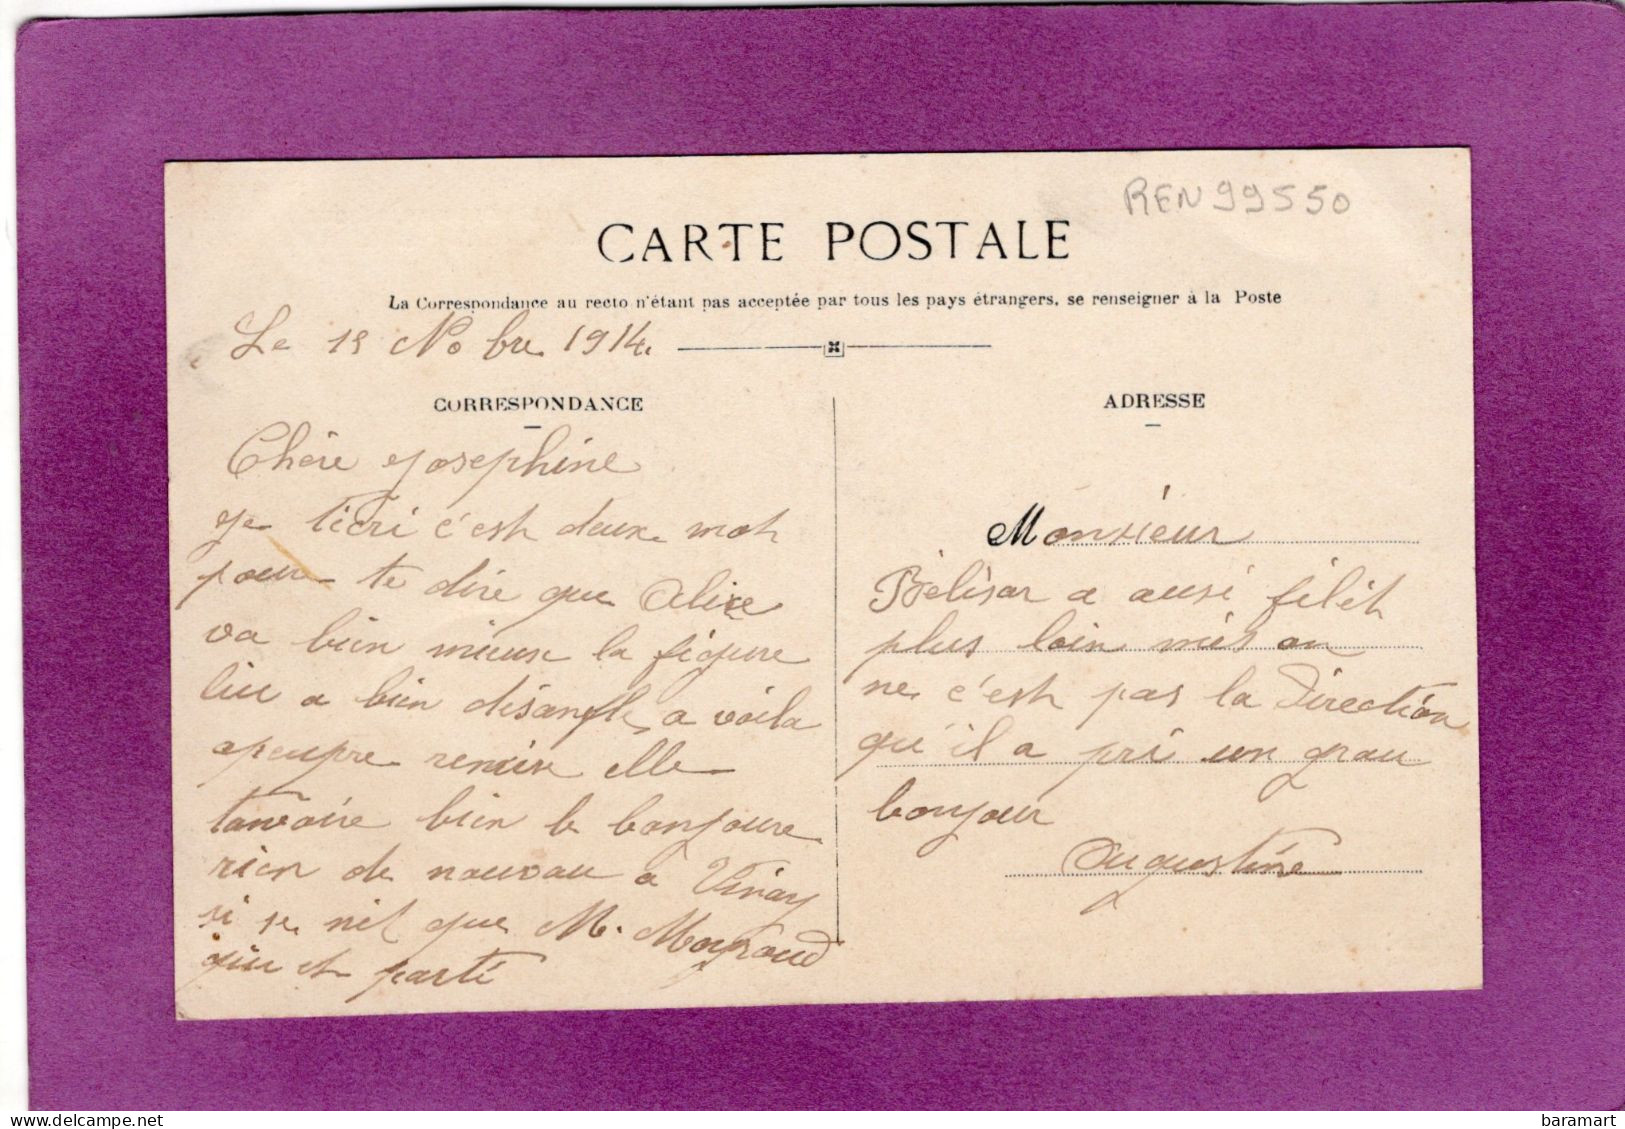 REN 99550
CARTE POSTALE
La Correspondance au recto n'étant pas acceptée par tous les pays étrangers, se renseigner à la Poste
Le 12 Nobre 1914
CORRESPONDANCE
Chére Josephine
je técri c'est deux mot
pour te dire que Alice
va bien mieux la figure
lui a bien désanfle, a voila
apeupre remise elle
tanvoire bien le bonjoure
rien de nouveau a Vinay
si se nét que M. Mayoud
qui et parti
ADRESSE
Monsieur
Bélisar a ausi filét
plus loin mes on
ne c'est pas la Direction
qu'il a pri un grau
bonjour
Augustine
baramart